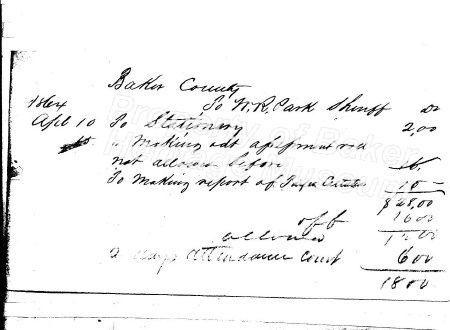 Baker County
To W.R. Park Sheriff Dr
1864
Apl 10 To Stationery 2,00
" making out apsmnt roa
not allowed before 16.
To making report of 10 -
$28,00
off 1600
allowed 12.00
2 days attendance Court 600
1800
Property of Baker
Museum